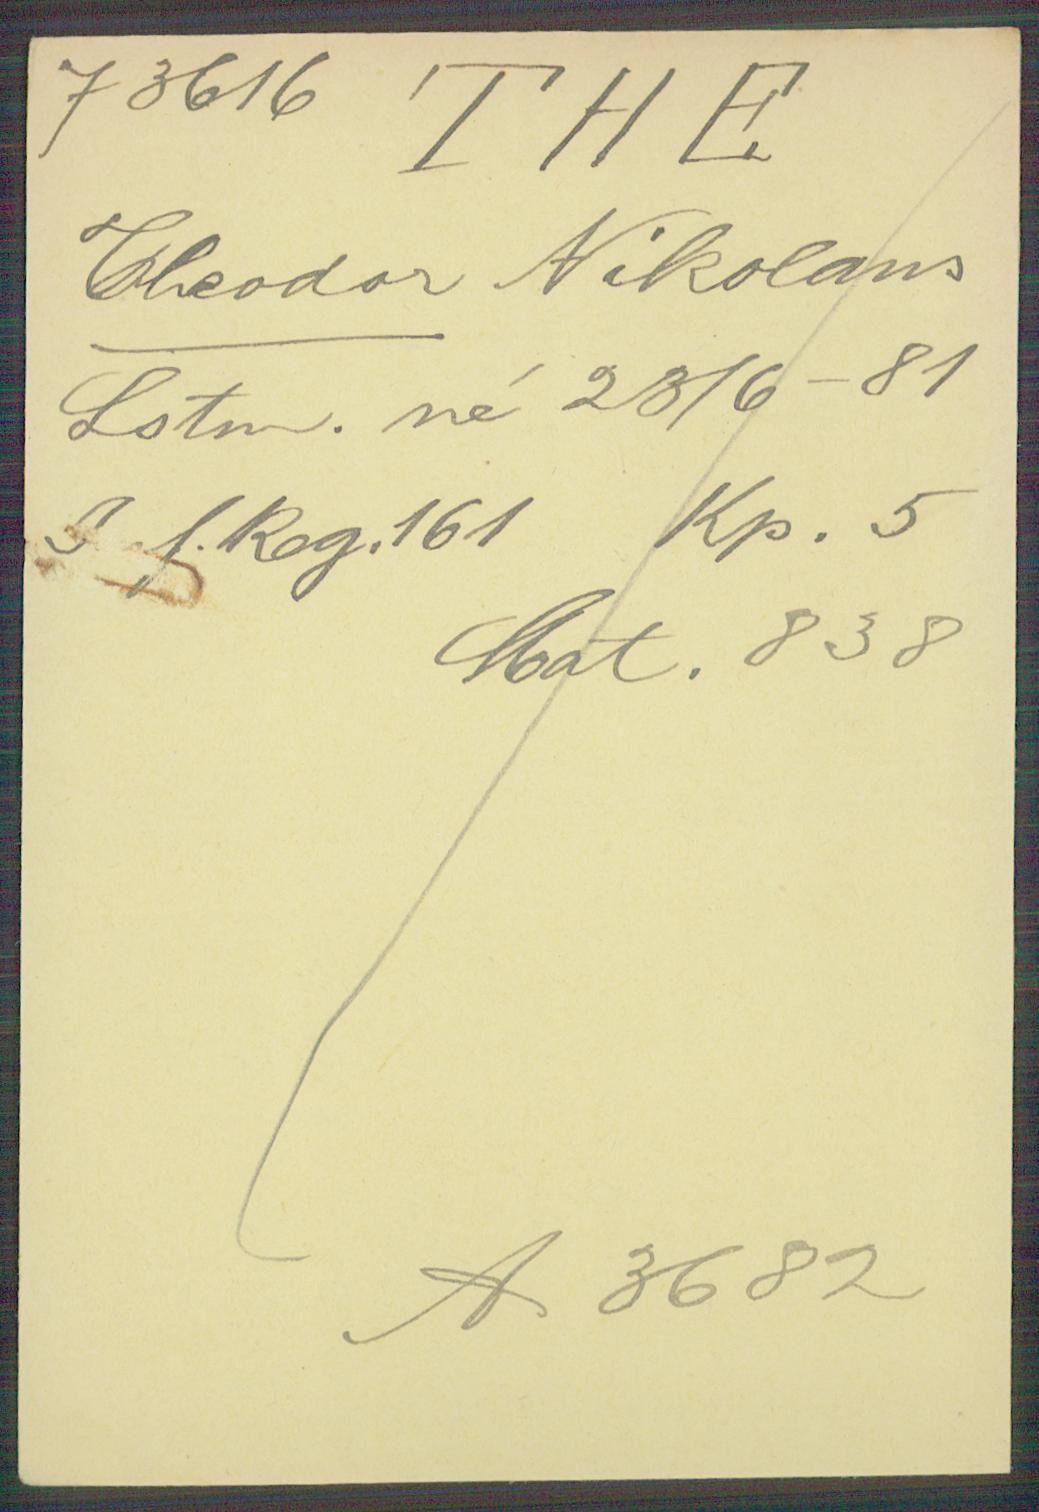 73616 THE
Theodor Nikolaus
Lstm. né 23/6-81
J f. Reg. 161 Kp. 5
Mat. 838
A 3682